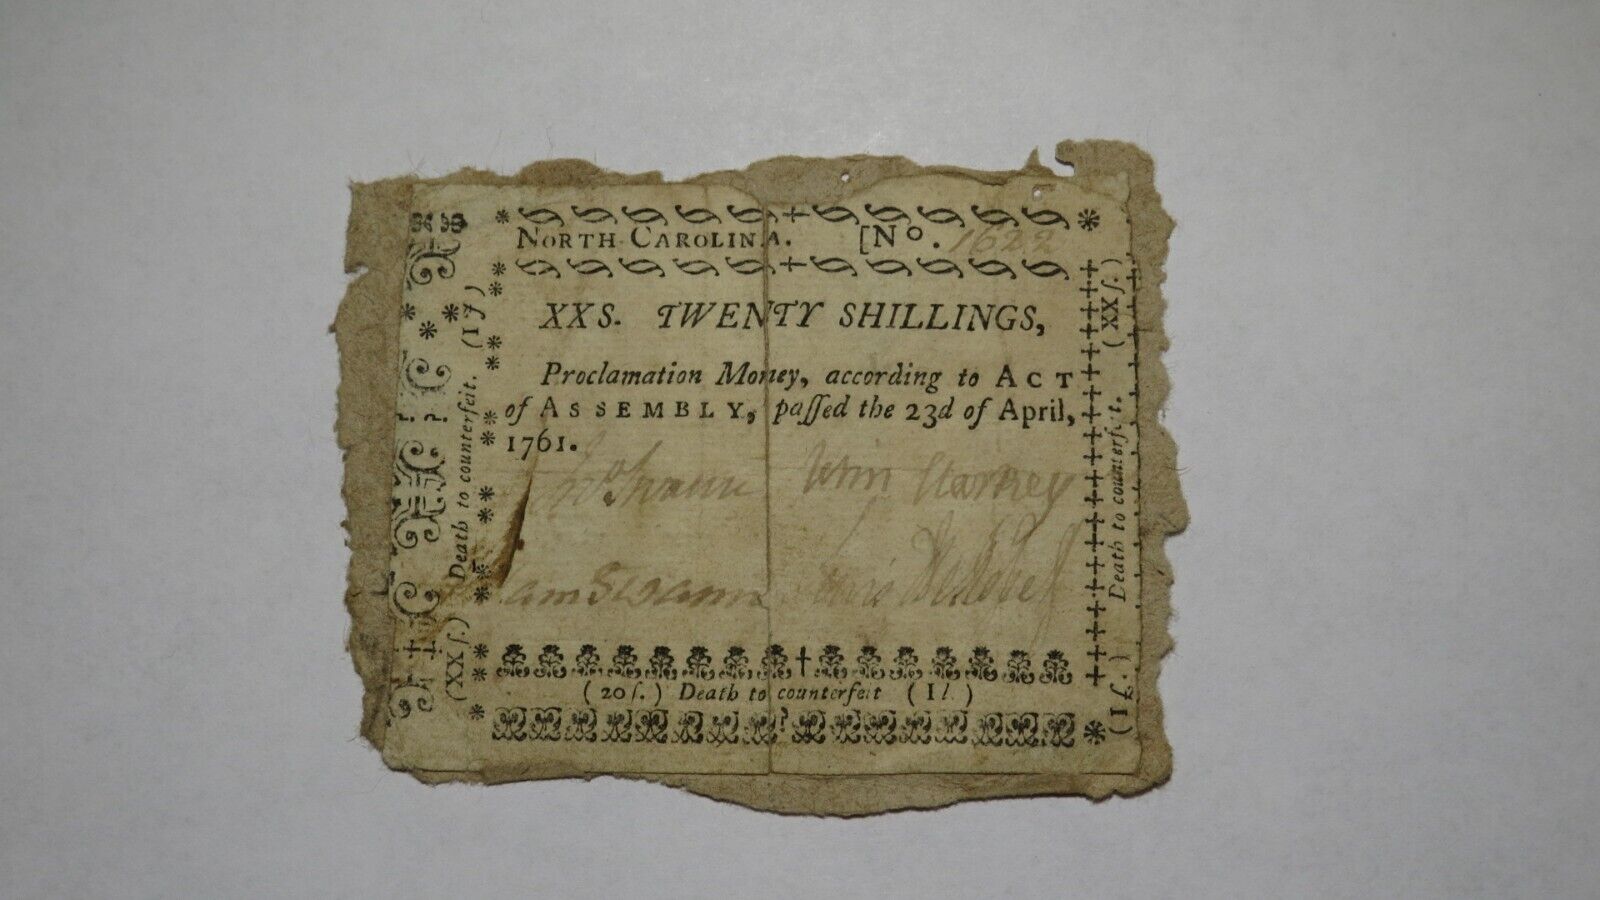 NORTH-CAROLINA. [No. 1622
XXS. TWENTY SHILLINGS,
Proclamation Money, according to ACT
of ASSEMBLY, paſſed the 23d of April,
1761.
Jno Swann Wm Starkey
Sam Swann
(20ſ.) Death to counterfeit (1l.)
(XXſ.) Death to counterfeit. (1ſ)
(1l.) Death to counterfeit. (XXſ.)